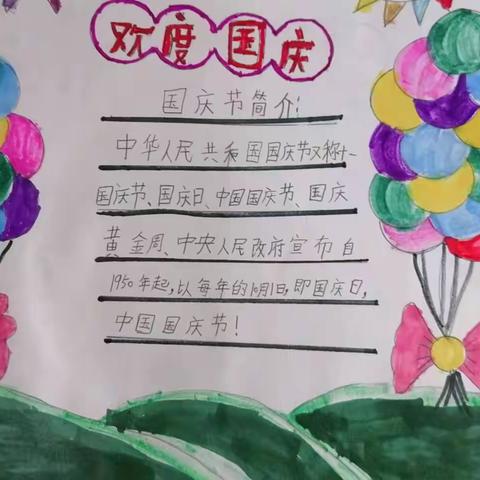 欢度国庆
国庆节简介:
中华人民共和国国庆节又称十一
国庆节、国庆日、中国国庆节、国庆
黄金周、中央人民政府宣布自
1950年起,以每年的10月1日,即国庆日,
中国国庆节!